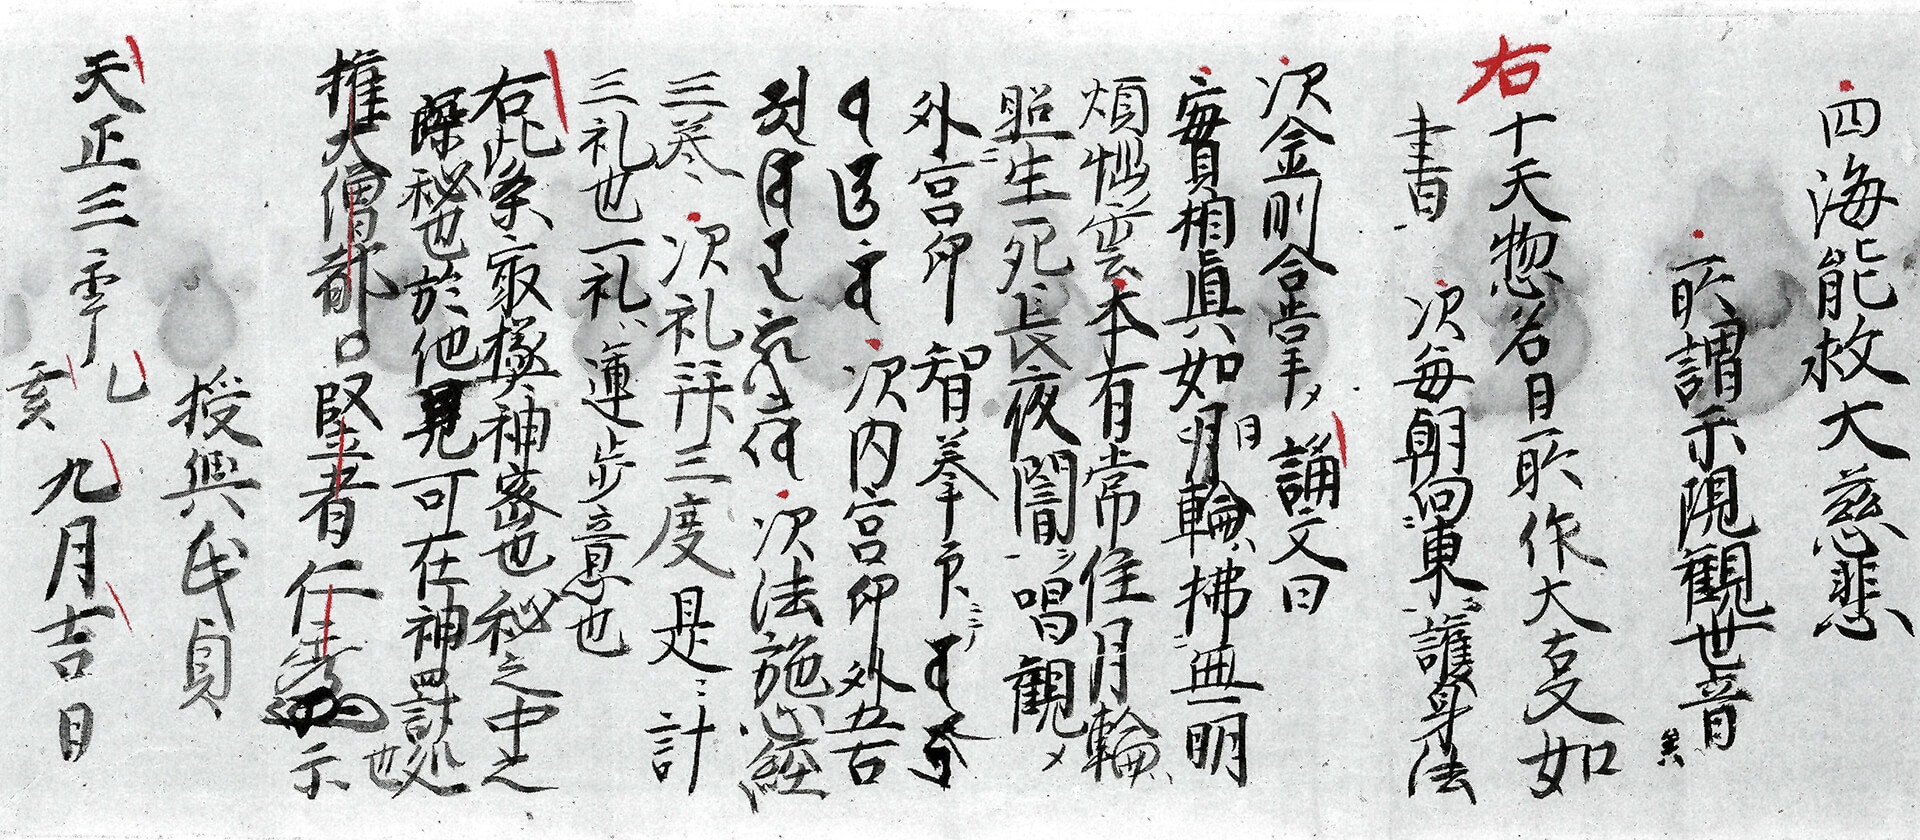 四海能救大慈悲
所謂示現觀世音
右十天惣名曰所作大支如
書 次毎朝向東護身法
次金剛合掌 誦文曰
實相眞如月輪拂無明
日
煩惱雲本有常住月輪
照生死長夜闇唱觀
外宮印 智拳印
次内宮印外五古
次法施心經
三巻 次礼拜三度是計
三礼也一礼運歩意也
右此条最極神密也秘之中之
深秘也於他見可在神罸処
也
権大僧都 堅者仁 示
授與 貞
天正三年乙
亥
九月吉日